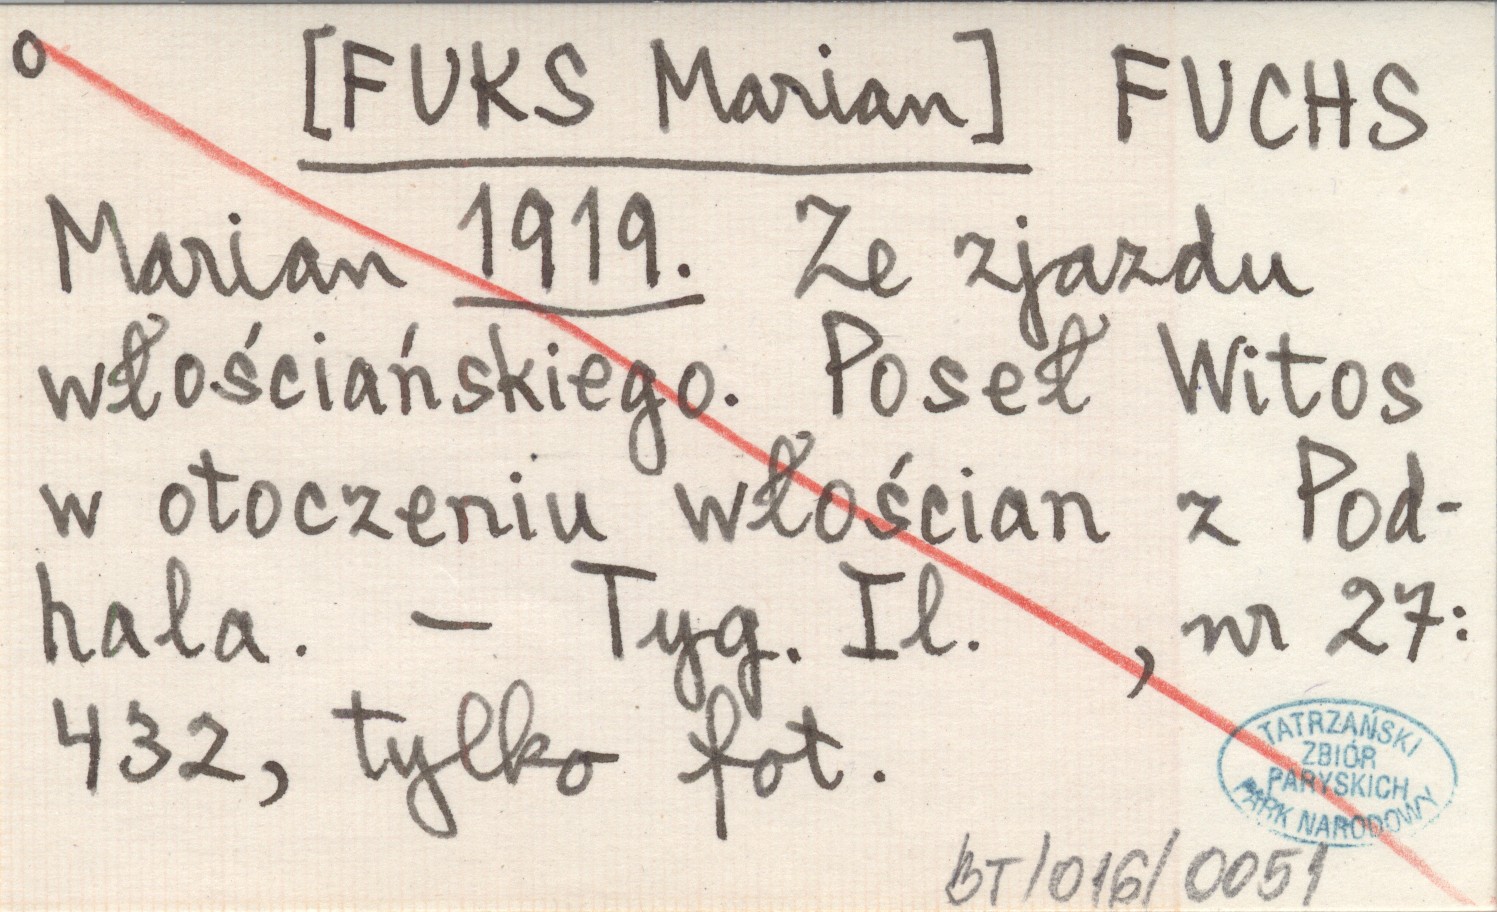 o [FUKS Marian] FUCHS
Marian 1919. Ze zjazdu
włościańskiego. Poseł Witos
w otoczeniu włościan z Pod-
hala. — Tyg. Il. , nr 27:
432, tylko fot.
TATRZAŃSKI
ZBIÓR
PARYSKICH
PARK NARODOWY
BT/016/0051